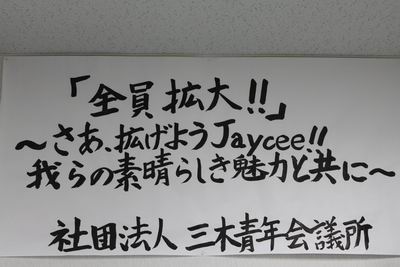 「全員拡大!!」
～さあ、拡げようJaycee!!
我らの素晴らしき魅力と共に～
社団法人 三木青年会議所